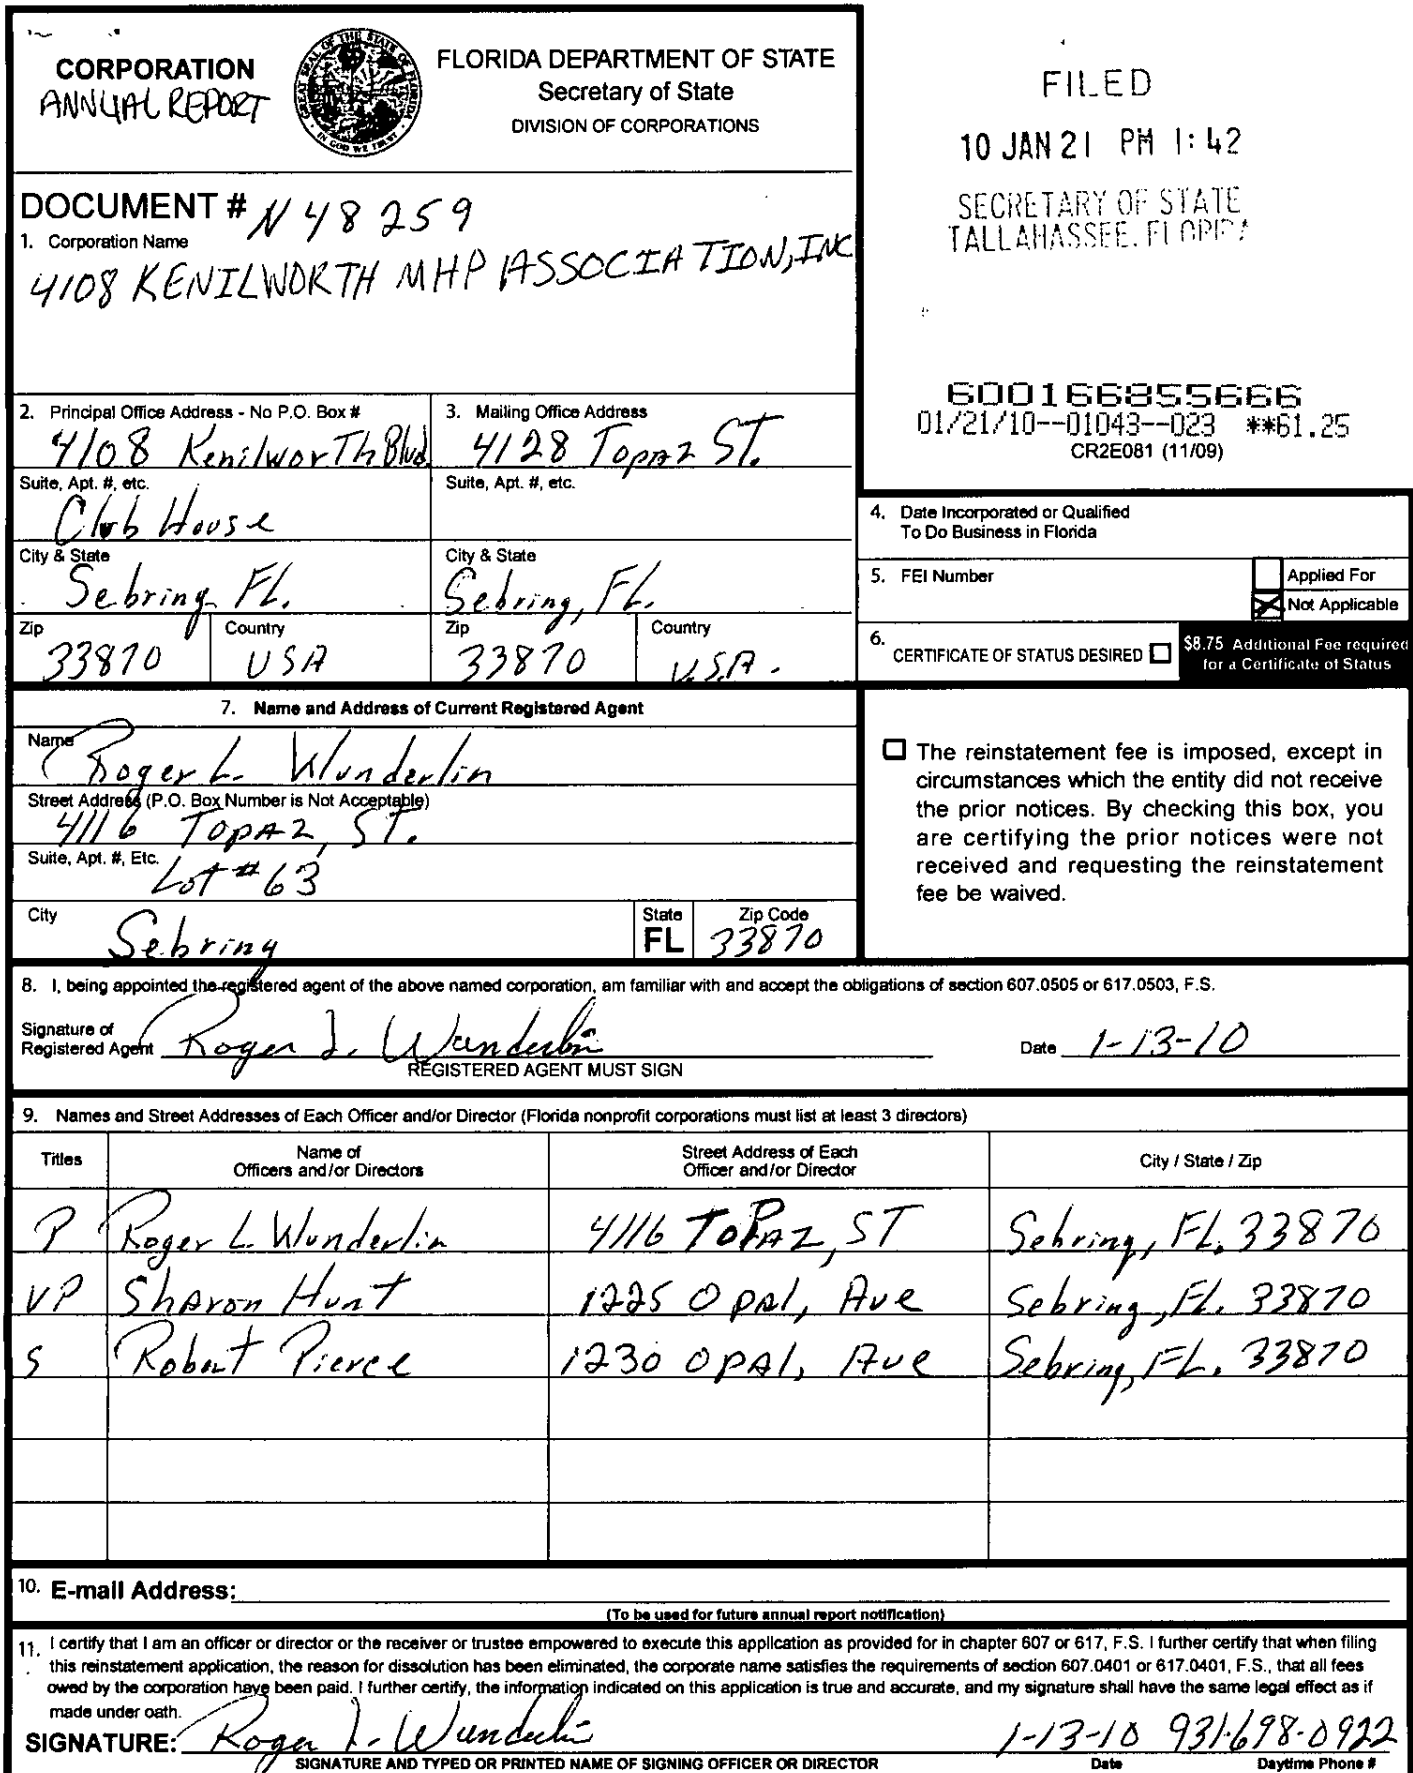 CORPORATION
ANNUAL REPORT
GREAT SEAL OF THE STATE OF FLORIDA
IN GOD WE TRUST
FLORIDA DEPARTMENT OF STATE
Secretary of State
DIVISION OF CORPORATIONS
FILED
10 JAN 21 PM 1:42
SECRETARY OF STATE
TALLAHASSEE, FLORIDA
DOCUMENT # N48259
1. Corporation Name
4108 KENILWORTH MHP ASSOCIATION, INC
600166855666
01/21/10--01043--023 **61.25
CR2E081 (11/09)
2. Principal Office Address - No P.O. Box #
4108 Kenilworth Blvd.
3. Mailing Office Address
4128 Topaz ST.
Suite, Apt. #, etc.
Club House
Suite, Apt. #, etc.
City & State
Sebring FL.
City & State
Sebring, FL.
Zip
33870
Country
USA
Zip
33870
Country
U.S.A.
4. Date Incorporated or Qualified
To Do Business in Florida
5. FEI Number
Applied For
Not Applicable
6. CERTIFICATE OF STATUS DESIRED
$8.75 Additional Fee required
for a Certificate of Status
7. Name and Address of Current Registered Agent
Name
Roger L. Wunderlin
Street Address (P.O. Box Number is Not Acceptable)
4116 Topaz, ST.
Suite, Apt. #, Etc.
Lot #63
City
Sebring
State
FL
Zip Code
33870
The reinstatement fee is imposed, except in
circumstances which the entity did not receive
the prior notices. By checking this box, you
are certifying the prior notices were not
received and requesting the reinstatement
fee be waived.
8. I, being appointed the registered agent of the above named corporation, am familiar with and accept the obligations of section 607.0505 or 617.0503, F.S.
Signature of
Registered Agent Roger L. Wunderlin
REGISTERED AGENT MUST SIGN
Date 1-13-10
9. Names and Street Addresses of Each Officer and/or Director (Florida nonprofit corporations must list at least 3 directors)
Titles
Name of
Officers and/or Directors
Street Address of Each
Officer and/or Director
City / State / Zip
P Roger L. Wunderlin 4116 Topaz, ST Sebring, FL. 33870
VP Sharon Hunt 1225 Opal, Ave Sebring, FL. 33870
S Robert Pierce 1230 Opal, Ave Sebring, FL. 33870
10. E-mail Address:
(To be used for future annual report notification)
11. I certify that I am an officer or director or the receiver or trustee empowered to execute this application as provided for in chapter 607 or 617, F.S. I further certify that when filing
this reinstatement application, the reason for dissolution has been eliminated, the corporate name satisfies the requirements of section 607.0401 or 617.0401, F.S., that all fees
owed by the corporation have been paid. I further certify, the information indicated on this application is true and accurate, and my signature shall have the same legal effect as if
made under oath.
SIGNATURE: Roger L. Wunderlin 1-13-10 931-698-0922
SIGNATURE AND TYPED OR PRINTED NAME OF SIGNING OFFICER OR DIRECTOR
Date
Daytime Phone #